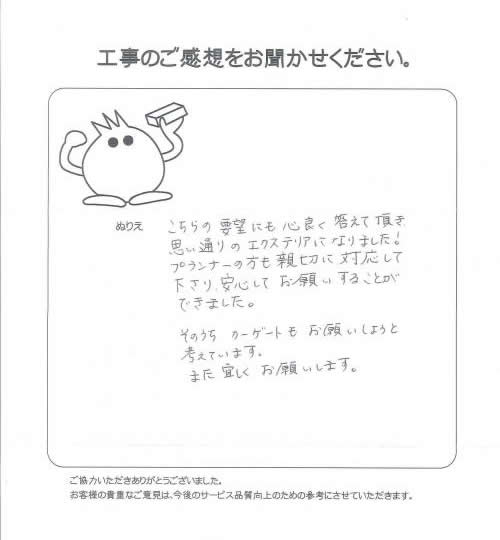 工事のご感想をお聞かせください。
ぬりえ
こちらの要望にも心良く答えて頂き、
思い通りのエクステリアになりました！
プランナーの方も親切に対応して
下さり、安心してお願いすることが
できました。
そのうちカーゲートもお願いしようと
考えています。
また宜しくお願いします。
ご協力いただきありがとうございました。
お客様の貴重なご意見は、今後のサービス品質向上のための参考にさせていただきます。